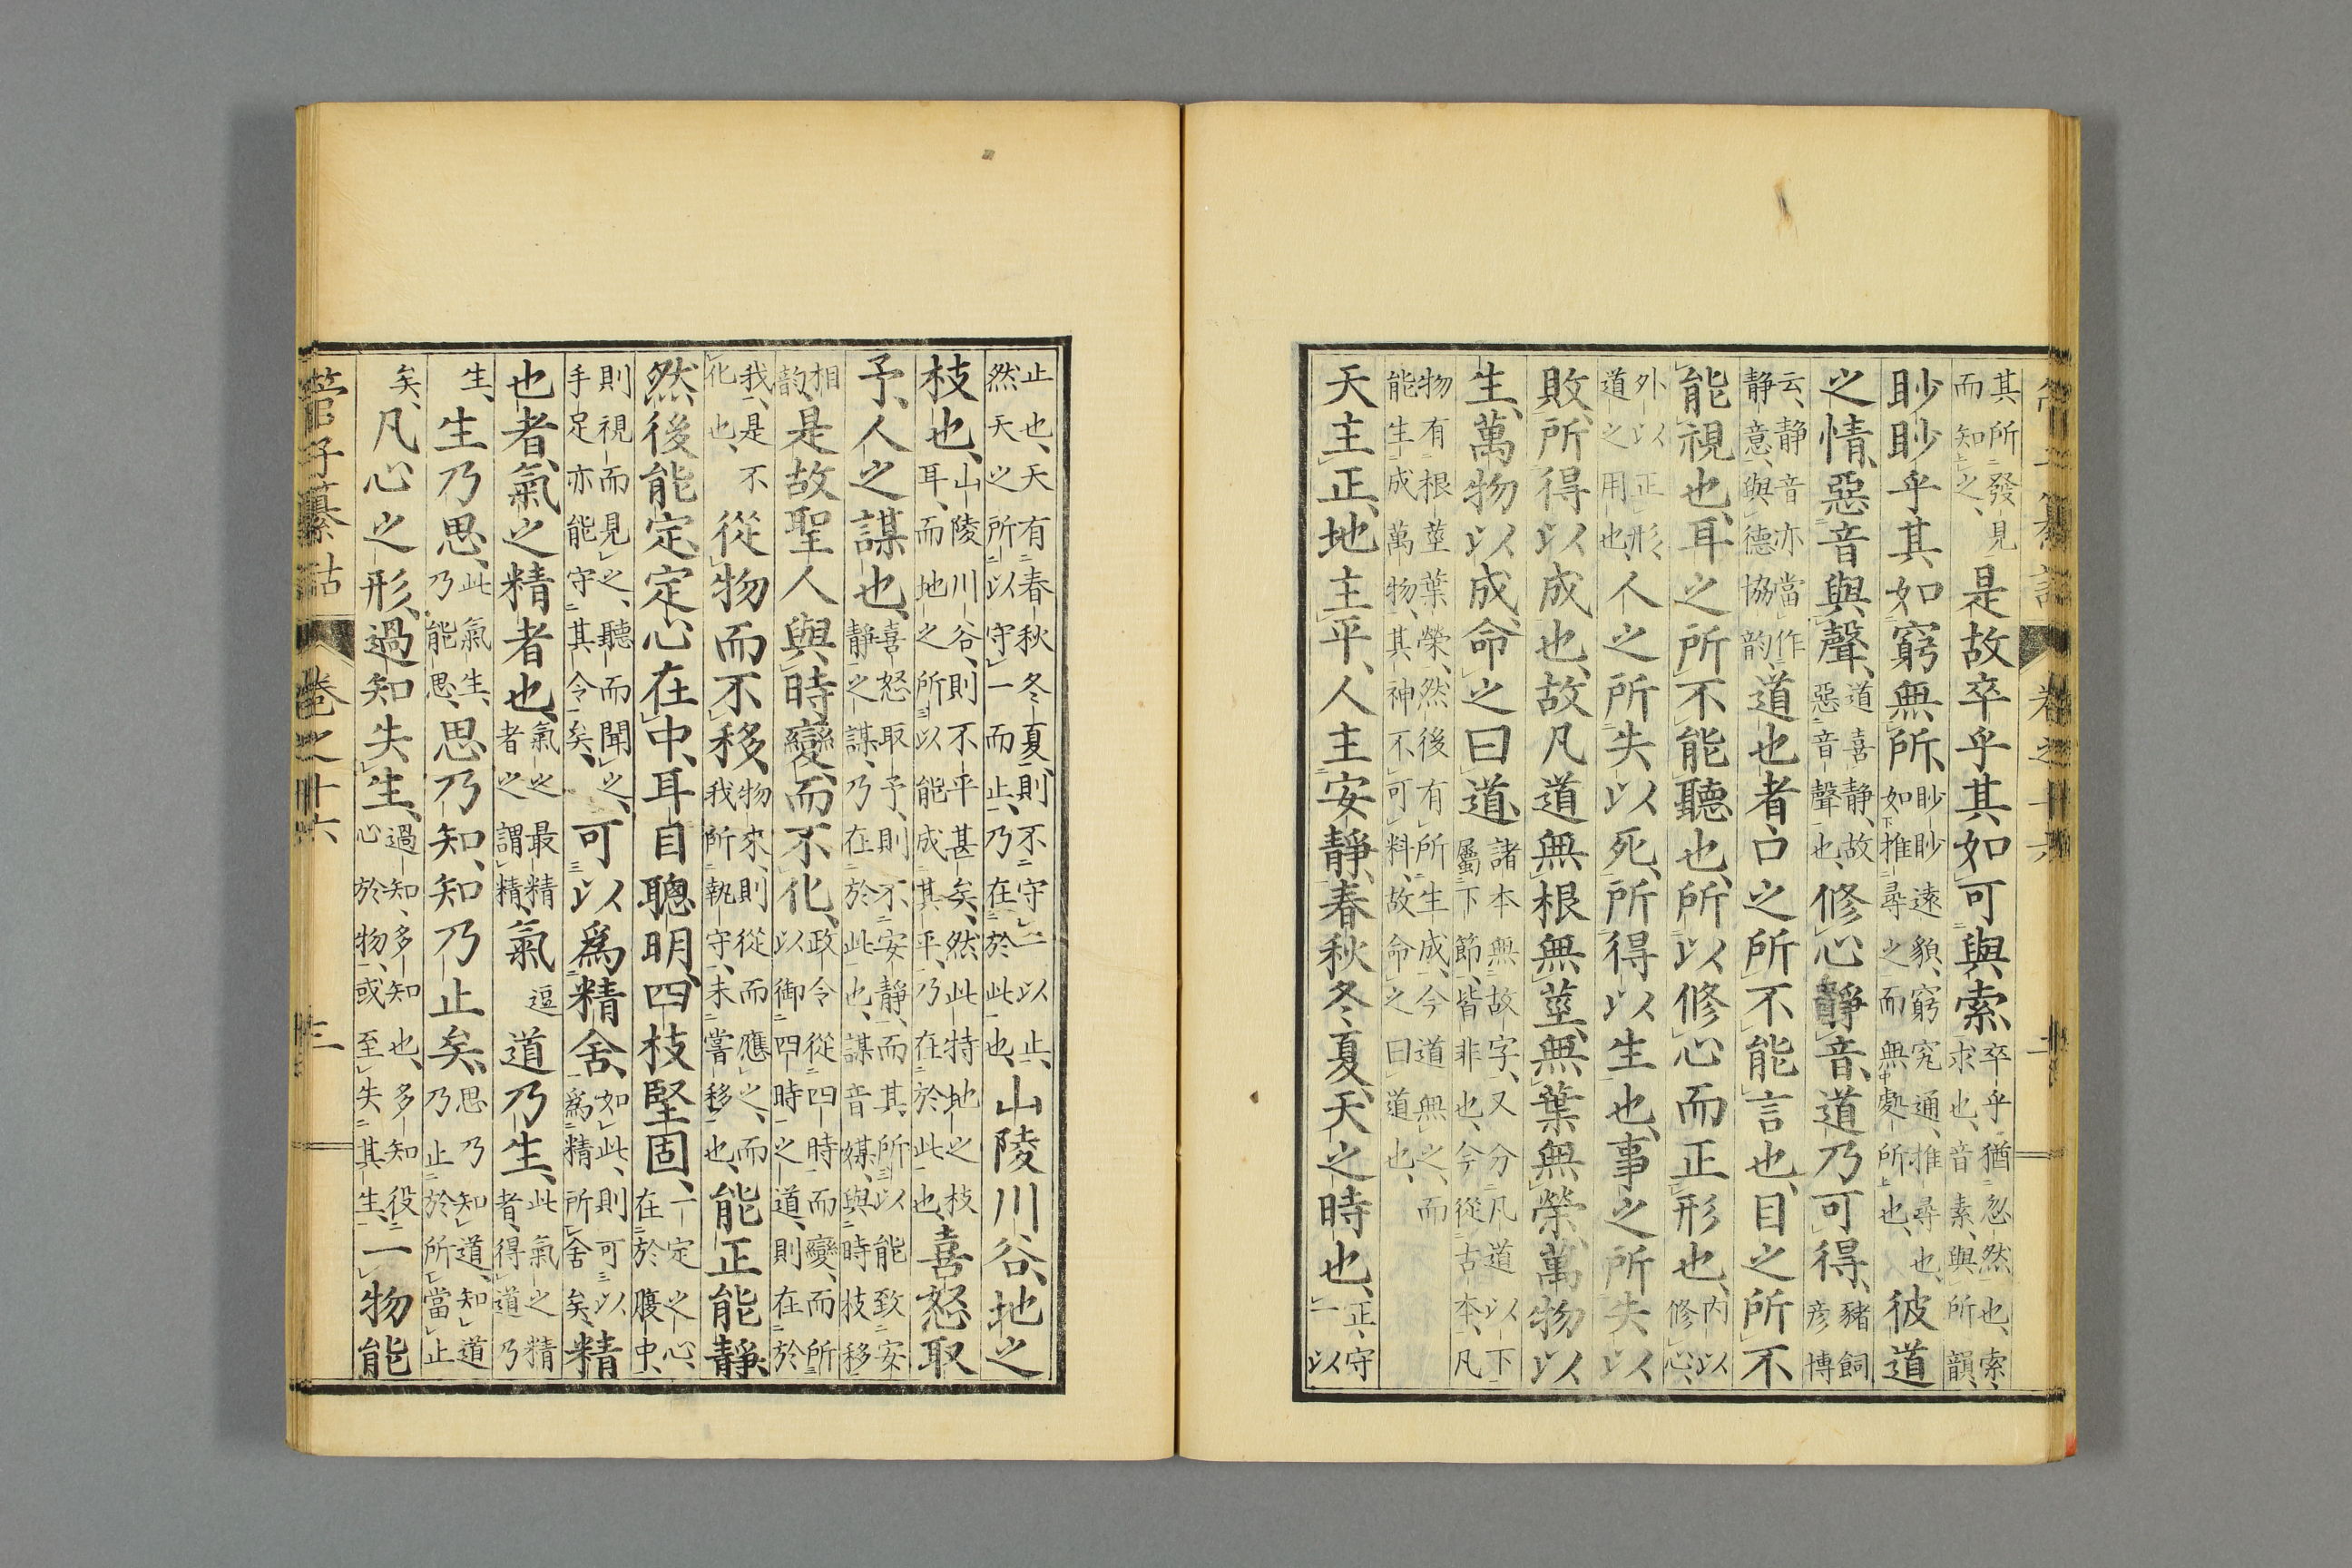 管子纂詁 卷之十六 二
其所發見而知之、是故卒乎其如可與索、卒乎猶忽然也、索、求也、音素、與所韻、
眇眇乎其如窮無所、眇眇遠貌、窮究通、推尋也、如推尋之而無處所也、彼道
之情、惡音與聲、道喜静、故惡音聲也、修心靜音、道乃可得、豬飼彦博
云、静音亦當作静意、與德協韵、道也者、口之所不能言也、目之所不
能視也、耳之所不能聽也、所以修心而正形也、内以修心、
外以正形、道之用也、人之所失以死、所得以生也、事之所失以
敗、所得以成也、故凡道無根無莖、無葉無榮、萬物以
生、萬物以成、命之曰道、諸本無故字、又分凡道以下屬下節、皆非也、今從古本、凡
物有根莖葉榮、然後有所生成、今道無之、而能生成萬物、其神不可料、故命之曰道也、
天主正、地主平、人主安靜、春秋冬夏、天之時也、正、守一以
止也、天有春秋冬夏、則不守一以止、然天之所以守一而止、乃在於此也、山陵川谷、地之
枝也、山陵川谷、則不平甚矣、然此特地之枝耳、而地之所以能成其平、乃在於此也、喜怒取
予、人之謀也、喜怒取予、則不安靜、而其所以能致安靜之謀、乃在於此也、謀音媒、與時枝移
相韵、是故聖人與時變而不化、政令從四時而變、而所以御四時之道、則在於
我、是不化也、從物而不移、物來、則從而應之、而我所執守、未嘗移也、能正能靜、
然後能定、定心在中、耳目聰明、四枝堅固、一定之心、在於腹中、
則視而見之、聽而聞之、手足亦能守其令矣、可以爲精舍、如此、則可以爲精所舍矣、精
也者、氣之精者也、氣之最精者之謂精、氣逗道乃生、此氣之精者、得道乃
生、生乃思、此氣生、乃能思、思乃知、知乃止矣、思乃知道、知道乃止於所當止
矣、凡心之形、過知失生、過知、多知也、多知役心於物、或至失其生、一物能
管子纂詁 卷之十六 三